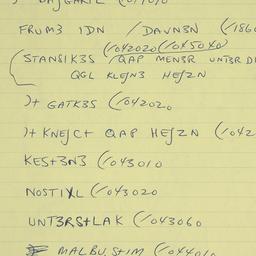 FRUM3 IDN / DAVN3N (/186
(/042020 (/045040
STANSIK3S /QAP MEN3R UNT3R D
QGL KLEJN3 HEJZN
)+ GATK3S (/042020
)+ KNEJC+ QAP HEJZN (/042
KES+3N3 (/043010
NOSTIXL (/043020
UNT3RS+LAK (/043060
MALBUS+IM (/044010